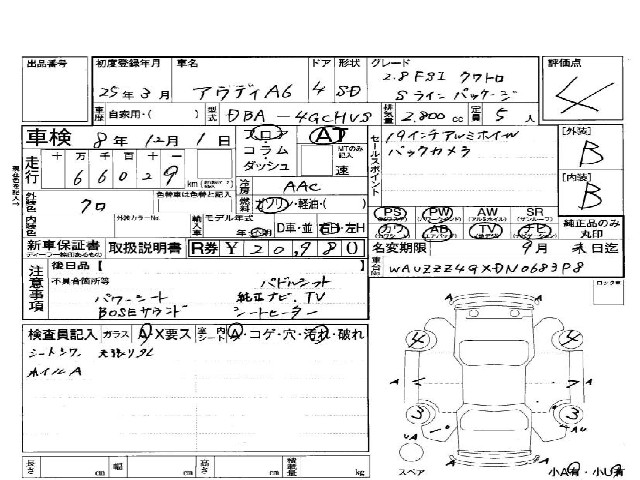 出品番号 初度登録年月 車名 ドア 形状 グレード 評価点
25年3月 アウディA6 4 SD 2.8FSI クワトロ
Sラインパッケージ 4
車歴 自家用・( ) 型式 DBA-4GCHVS 排気量 2,800 cc 定員 5 人
車検 8年12月1日 フロア AT セールスポイント 19インチアルミホイル [外装]
コラム・ダッシュ MTのみ記入 速 バックカメラ B
走行 十 万 千 百 十 一
66029 km 冷房 AAC [内装]
外装色 クロ 色替車は色替と記入 燃料 ガソリン・軽油・( ) B
内装色 外装カラーNo. 輸入車 モデル年式 年 D車・並 右H・左H
PS PW AW SR
カワ AB TV ナビ 純正品のみ丸印
新車保証書 取扱説明書 R券 ¥20,980 名変期限 9月末日迄
車台No. WAUZZZ4GXDN0683P8
注意事項 後日品【 】
不具合箇所等 パドルシフト
パワーシート 純正ナビ.TV
BOSEサウンド シートヒーター
検査員記入 ガラス A・X要ス 室内シート A・コゲ・穴・汚れ・破れ
シートシワ 天張りタレ
ホイルA
4 4
A A
3 3
A A U
スペア 小A有・小U有
長さ cm 幅 cm 高さ cm 積載量 kg